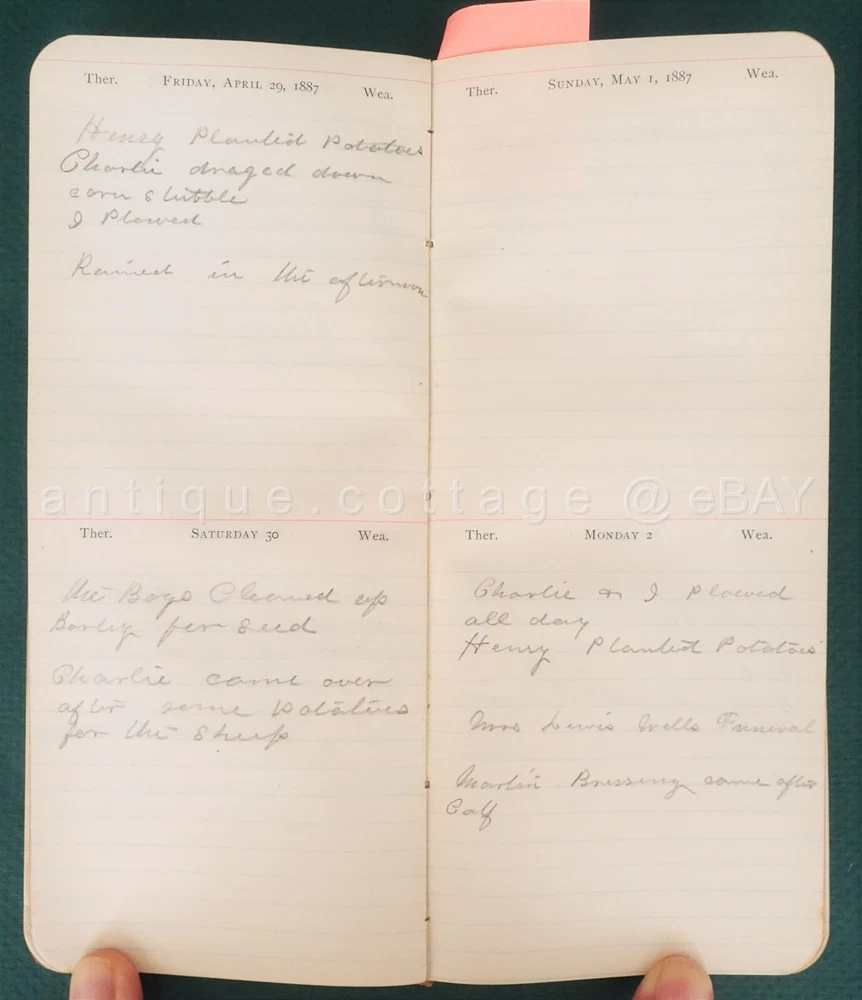 Ther. FRIDAY, APRIL 29, 1887 Wea.
Henry Planted Potatoes
Charlie draged down
corn stubble
I Plowed
Rained in the afternoon
Ther. SATURDAY 30 Wea.
the Boys Cleaned up
Barley for Seed
Charlie came over
after some Potatoes
for the Sheep
Ther. SUNDAY, MAY 1, 1887 Wea.
Ther. MONDAY 2 Wea.
Charlie & I Plowed
all day
Henry Planted Potatoes
Mrs Lewis Wells Funeral
Martin came after
Calf
antique.cottage @ eBAY